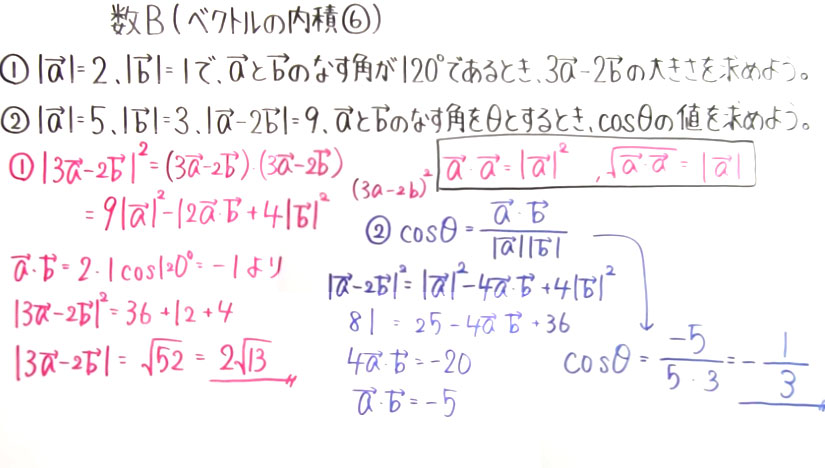 数B(ベクトルの内積⑥)
① |a⃗|=2、|b⃗|=1で、a⃗とb⃗のなす角が120°であるとき、3a⃗-2b⃗の大きさを求めよう。
② |a⃗|=5、|b⃗|=3、|a⃗-2b⃗|=9、a⃗とb⃗のなす角をθとするとき、cosθの値を求めよう。
① |3a⃗-2b⃗|²=(3a⃗-2b⃗)·(3a⃗-2b⃗)
=9|a⃗|²-12a⃗·b⃗+4|b⃗|²
a⃗·b⃗=2·1cos120°=-1より
|3a⃗-2b⃗|²=36+12+4
|3a⃗-2b⃗|=√52=2√13
(3a-2b)²
a⃗·a⃗=|a⃗|²、√a⃗·a⃗=|a⃗|
② cosθ=a⃗·b⃗/|a⃗||b⃗|
|a⃗-2b⃗|²=|a⃗|²-4a⃗·b⃗+4|b⃗|²
81=25-4a⃗·b⃗+36
4a⃗·b⃗=-20
a⃗·b⃗=-5
cosθ=-5/5·3=-1/3